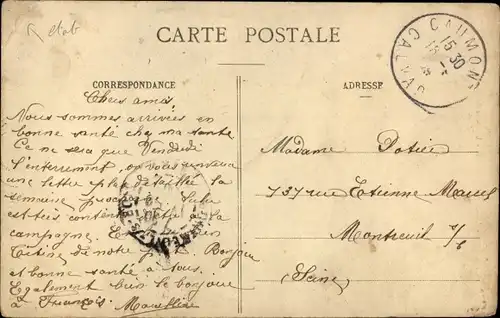 R etab
CARTE POSTALE
CAUMONT
15 30
CALVADOS
CORRESPONDANCE
ADRESSE
Chers amis,
Nous sommes arrivées en
bonne santé chez ma tante
Ce ne sera que Vendredi
l'enterrement, on vous enverra
une lettre plus détaillée la
semaine prochaine.
est très contente à la
campagne.
Titine de notre Bonjour
et bonne santé à tous.
Également bien le bonjour
à François.
Madame Potier
137 rue Etienne Marcel
Montreuil s/s
Seine